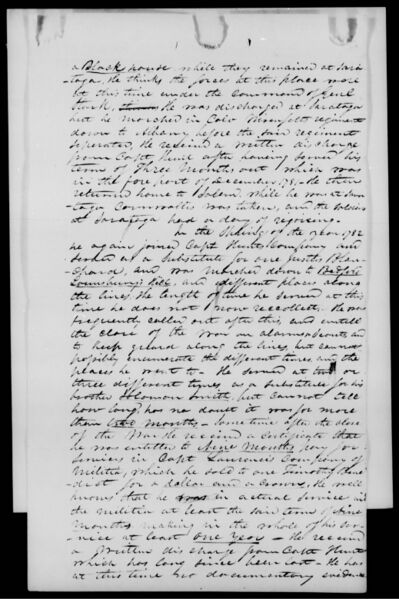 a Block house while they remained at Sara
toga, He thinks the forces at this place were
at this time under the command of Genl
Stark, He was discharged at Saratoga
but he marched in Colo regiment
down to Albany before the said regiment
seperated, He received a written discharge
from Capt Hunt after having served his
term of Three Months out which was
in the fore part of December 1781, He then
returned home to Salem, While he was at Sara
toga Cornwallis was taken, and the soldiers
at Saratoga held a day of rejoicing.
In the Spring of the year 1782
he again joined Capt Hunts Company and
served as a Substitute for one Justus Blan
chard, and was marched down to Bedford
and different places along
the lines, the length of time he served at this
time he does not now recollect. He was
frequently called out after this, and untill
the close of the War on alarms, scouts, and
to keep guard along the lines, but cannot
possibly enumerate the different times, and the
places he went to - He served at two or
three different times, as a substitute for his
brother Solomon Smith, but cannot tell
how long, has no doubt it was for more
than two months - Some time after the close
of the War he received a certificate that
he was entitled to Nine Months pay for
services in Capt Lawrences Company of
Militia, which he sold to one Timothy Bene
dict for a dollar and a Crown, He well
knows that he was in actual service in
the militia at least the said term of Nine
Months making in the whole of his ser-
vice at least One Year - He received
a written discharge from Capt Hunt
which has long since been lost - He has
at this time no documentary evidence